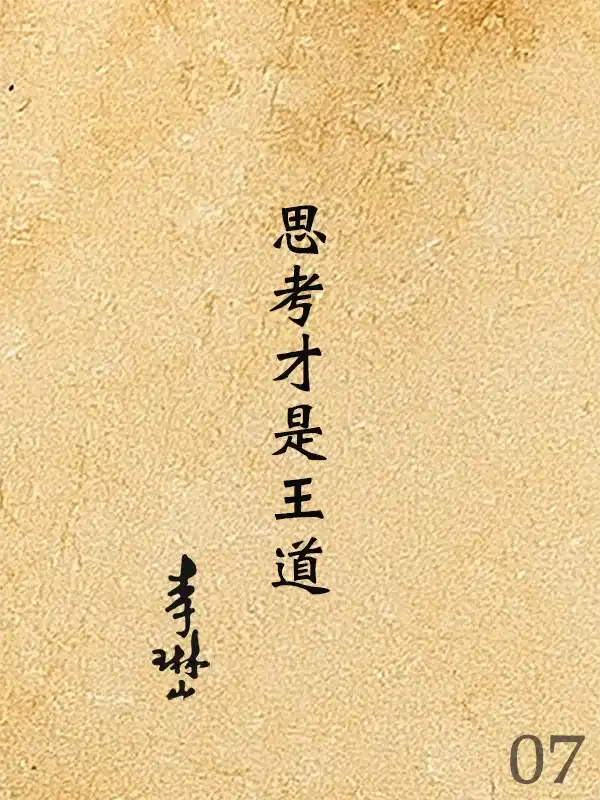 思考才是王道
李琳山
07